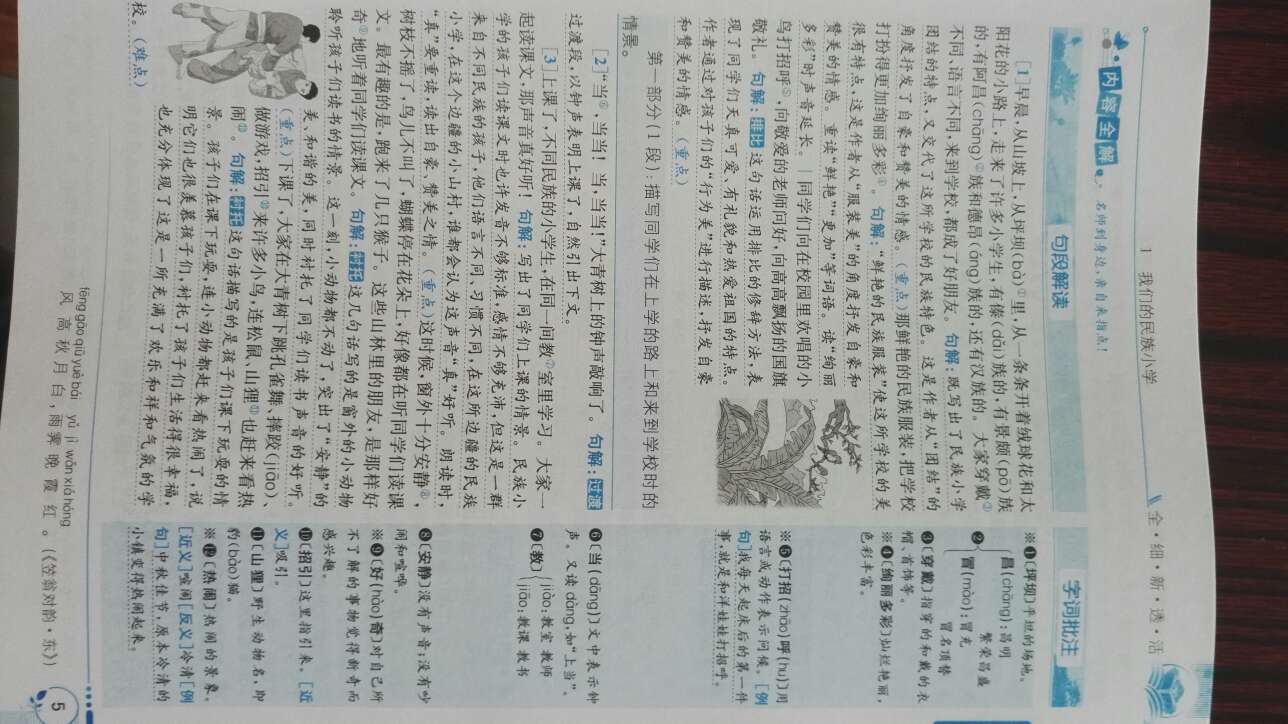 1 我们的民族小学
全·细·新·透·活
内容全解
名师到身边,亲自来指点!
句段解读
字词批注
[1]早晨,从山坡上,从坪坝(bà)①里,从一条条开着绒球花和太
阳花的小路上,走来了许多小学生,有傣(dǎi)族的,有景颇(pō)族
的,有阿昌(chāng)②族和德昂(áng)族的,还有汉族的。大家穿戴③
不同、语言不同,来到学校,都成了好朋友。句解:既写出了民族小学
团结的特点,又交代了这所学校的民族特色。这是作者从“团结”的
角度抒发了自豪和赞美的情感。(重点)那鲜艳的民族服装,把学校
打扮得更加绚丽多彩④。句解:“鲜艳的民族服装”使这所学校的美
很有特点,这是作者从“服装美”的角度抒发自豪和
赞美的情感。重读“鲜艳”“更加”等词语。读“绚丽
多彩”时声音延长。同学们向在校园里欢唱的小
鸟打招呼⑤,向敬爱的老师问好,向高高飘扬的国旗
敬礼。句解:排比 这句话运用排比的修辞方法,表
现了同学们天真可爱、有礼貌和热爱祖国的特点。
作者通过对孩子们的“行为美”进行描述,抒发自豪
和赞美的情感。(重点)
第一部分(1段):描写同学们在上学的路上和来到学校时的
情景。
[2]“当⑥,当当!当,当当!”大青树上的钟声敲响了。句解:过渡
过渡段,以钟声表明上课了,自然引出下文。
[3]上课了,不同民族的小学生,在同一间教⑦室里学习。大家一
起读课文,那声音真好听!句解:写出了同学们上课的情景。民族小
学的孩子们读课文时也许发音不够标准,感情不够充沛,但这是一群
来自不同民族的孩子,他们语言不同、习惯不同,在这所边疆的民族
小学,在这个边疆的小山村,谁都会认为这声音“真”好听。朗读时,
“真”要重读,读出自豪、赞美之情。(重点)这时候,窗外十分安静⑧,
树枝不摇了,鸟儿不叫了,蝴蝶停在花朵上,好像都在听同学们读课
文。最有趣的是,跑来了几只猴子。这些山林里的朋友,是那样好
奇⑨地听着同学们读课文。句解:衬托 这几句话写的是窗外的小动物
聆听孩子们读书的情景。这一刻,小动物都不动了,突出了“安静”的
美、和谐的美,同时衬托了同学们读书声音的好听。
(重点)下课了,大家在大青树下跳孔雀舞、摔跤(jiāo)、
做游戏,招引⑩来许多小鸟,连松鼠、山狸⑪也赶来看热
闹⑫。句解:衬托 这句话描写的是孩子们课下玩耍的情
景。孩子们在课下玩耍,连小动物都赶来看热闹了,说
明它们也很羡慕孩子们,衬托了孩子们生活得很幸福,
也充分体现了这是一所充满了欢乐和祥和气氛的学
校。(难点)
※❶〔坪坝〕平坦的场地。
❷ 昌(chāng):昌明 繁荣昌盛
冒(mào):冒充 冒名顶替
❸〔穿戴〕指穿的和戴的衣
帽、首饰等。
※❹〔绚丽多彩〕灿烂艳丽,
色彩丰富。
※❺〔打招(zhāo)呼(hu)〕用
语言或动作表示问候。[例
句]我每天起床后的第一件
事,就是和洋娃娃打招呼。
❻〔当(dāng)〕文中表示钟
声。又读dàng,如“上当”。
❼〔教〕 jiào:教室 教师
jiāo:教课 教书
❽〔安静〕没有声音;没有吵
闹和喧哗。
※❾〔好(hào)奇〕对自己所
不了解的事物觉得新奇而
感兴趣。
❿〔招引〕这里指引来。[近
义]吸引。
⓫〔山狸〕野生动物名,即
豹(bào)猫。
※⓬〔热闹〕热闹的景象。
[近义]喧闹[反义]冷清[例
句]中秋佳节,原本冷清的
小镇变得热闹起来。
fēng gāo qiū yuè bái yǔ jì wǎn xiá hóng
风高秋月白,雨霁晚霞红。(《笠翁对韵·东》)
5